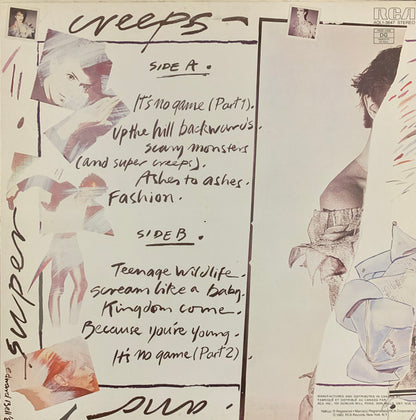 creeps
RCA
AQL1-3647 STEREO
SIDE A.
It's no game (Part 1).
Up the hill backwards.
scary monsters
(and super creeps).
Ashes to ashes.
Fashion.
SIDE B.
Teenage wildlife.
scream like a baby.
Kingdom come.
Because you're young.
It's no game (Part 2).
super
MANUFACTURED AND DISTRIBUTED IN CANADA